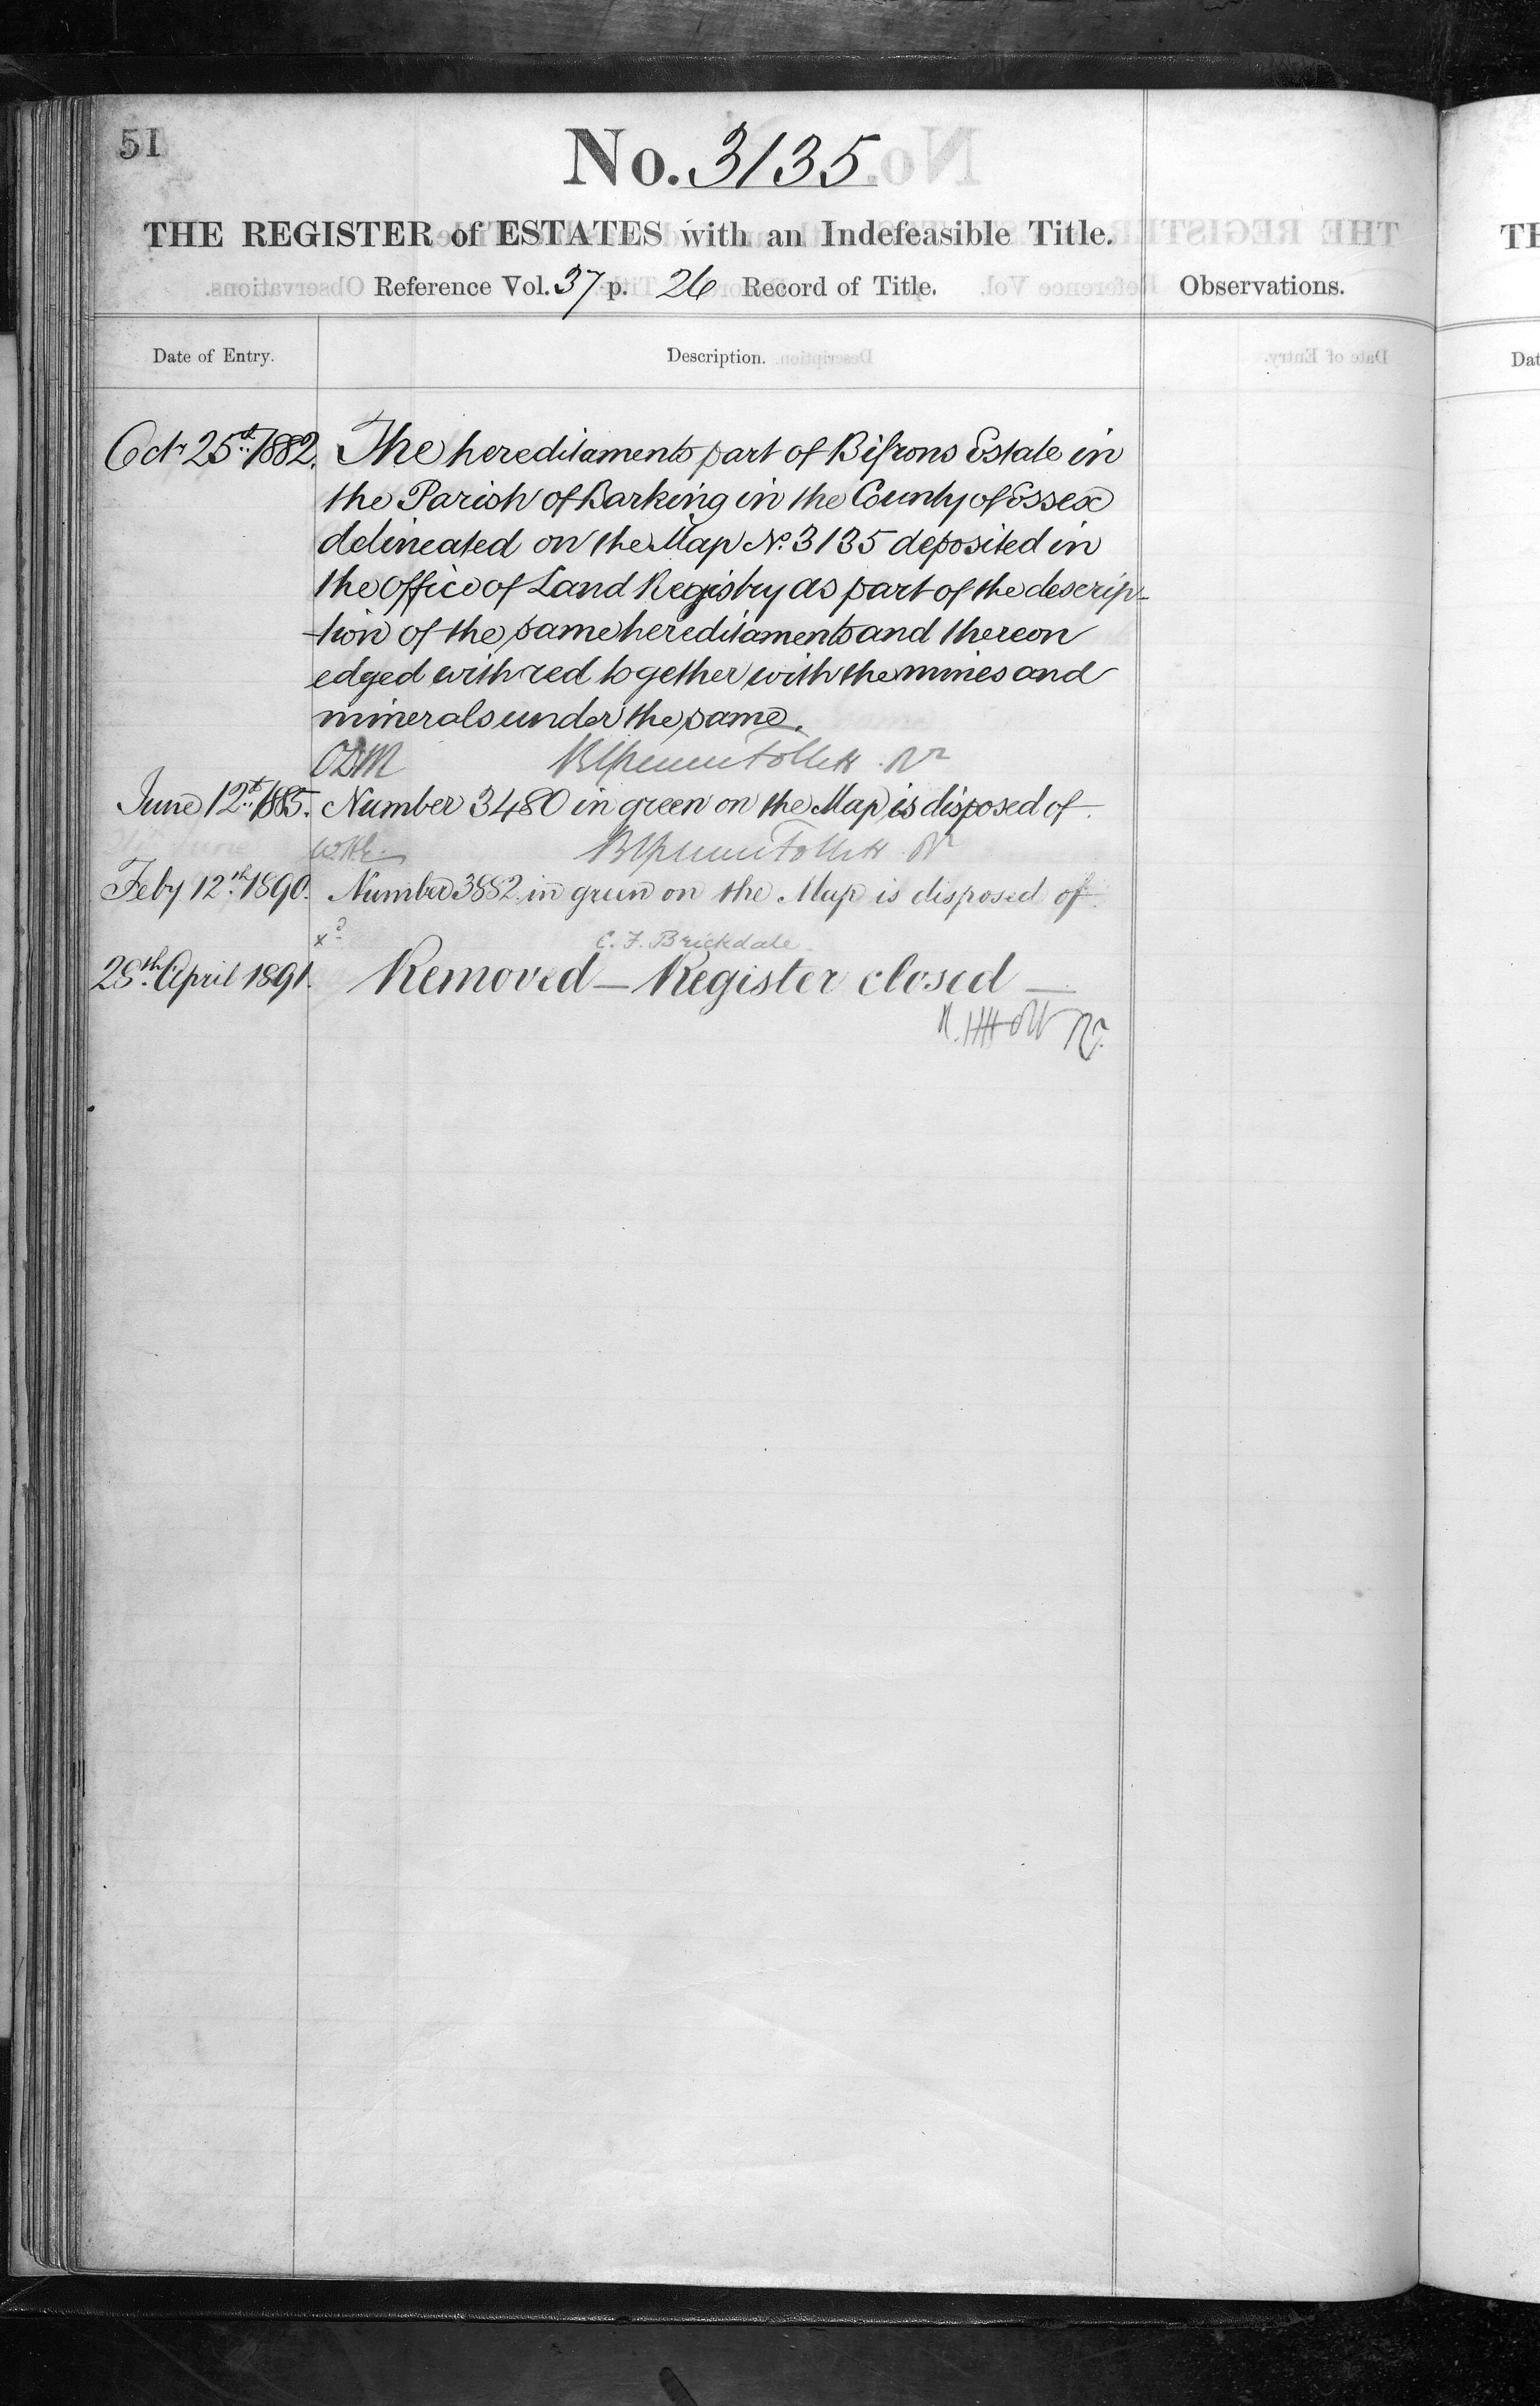 51
No. 3135
THE REGISTER of ESTATES with an Indefeasible Title.
Reference Vol. 37 p. 26 Record of Title.
Observations.
Date of Entry.
Description.
Octr 25th 1882. The hereditaments part of Bifrons Estate in
the Parish of Barking in the County of Essex
delineated on the Map No. 3135 deposited in
the office of Land Registry as part of the descrip-
-tion of the same hereditaments and thereon
edged with red together with the mines and
minerals under the same.
June 12th 1885. Number 3480 in green on the Map is disposed of.
Feby 12th 1890. Number 3882 in green on the Map is disposed of.
C. F. Brickdale
28th April 1891. Removed — Register closed —